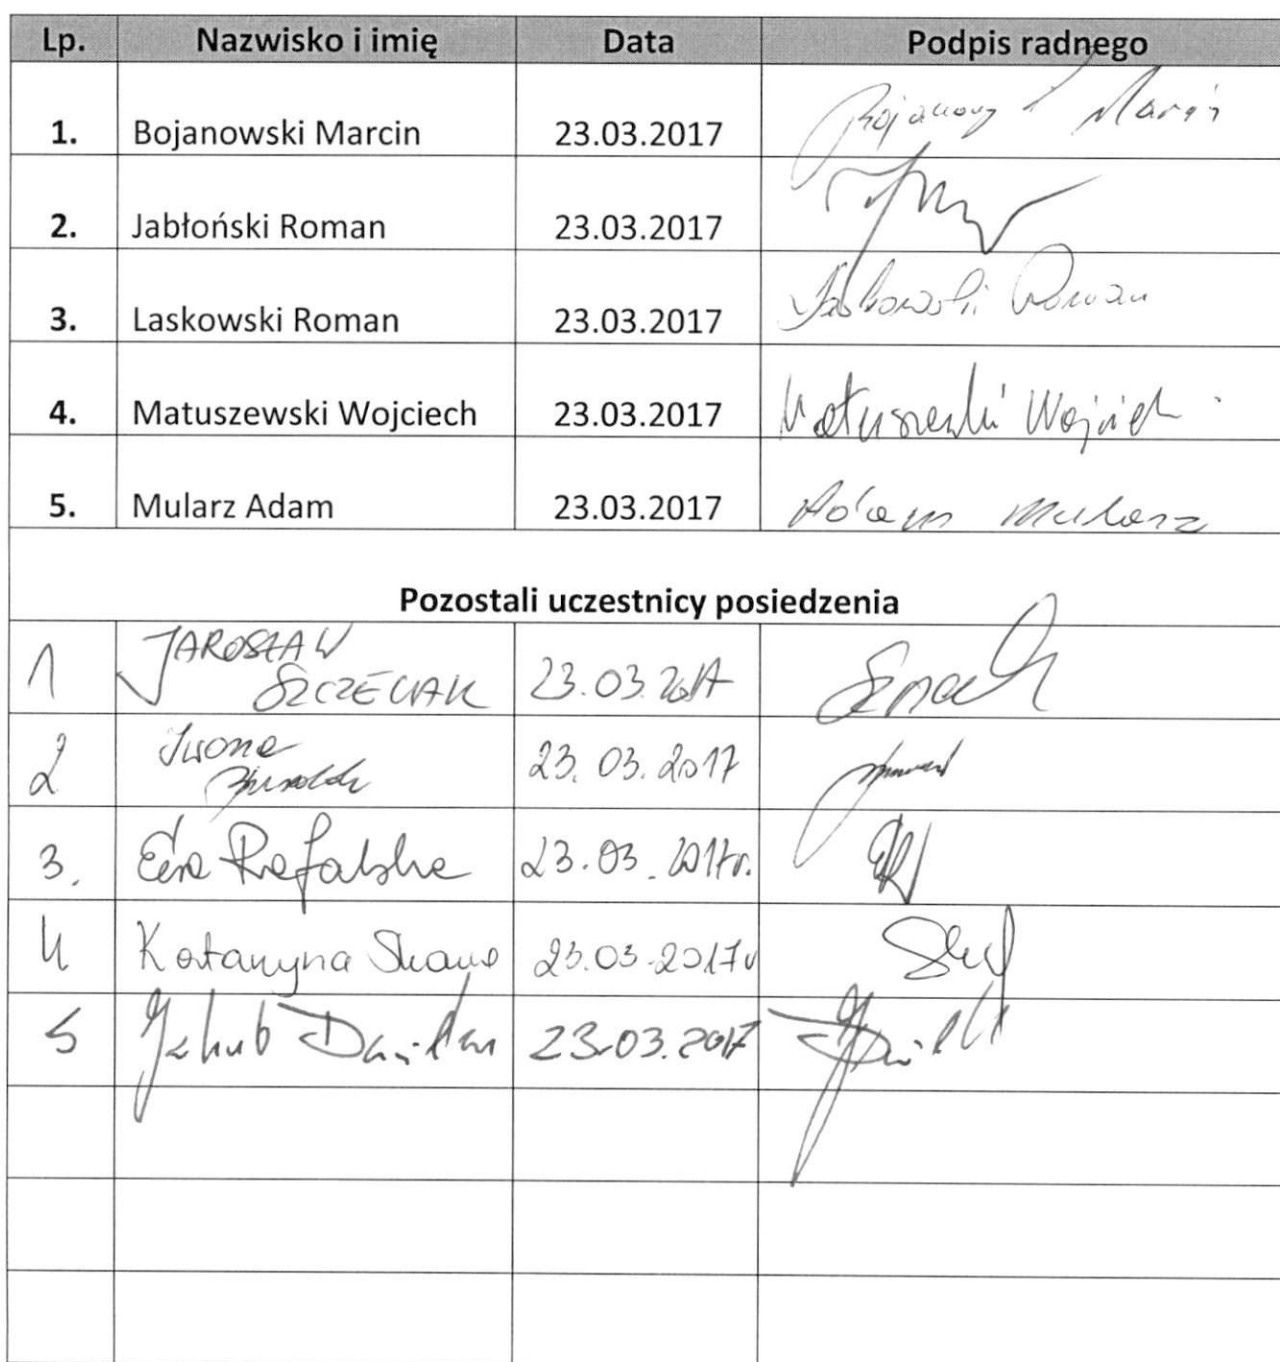 Lp. Nazwisko i imię Data Podpis radnego
1. Bojanowski Marcin 23.03.2017
2. Jabłoński Roman 23.03.2017
3. Laskowski Roman 23.03.2017 Laskowski Roman
4. Matuszewski Wojciech 23.03.2017 Matuszewski Wojciech
5. Mularz Adam 23.03.2017 Adam Mularz
Pozostali uczestnicy posiedzenia
1 JAROSŁAW
SZCZECIAK 23.03.2017
2 Iwona
23.03.2017
3. Ewa Rafalska 23.03.2017r.
4 Katarzyna 23.03.2017r
5 Jakub 23.03.2017